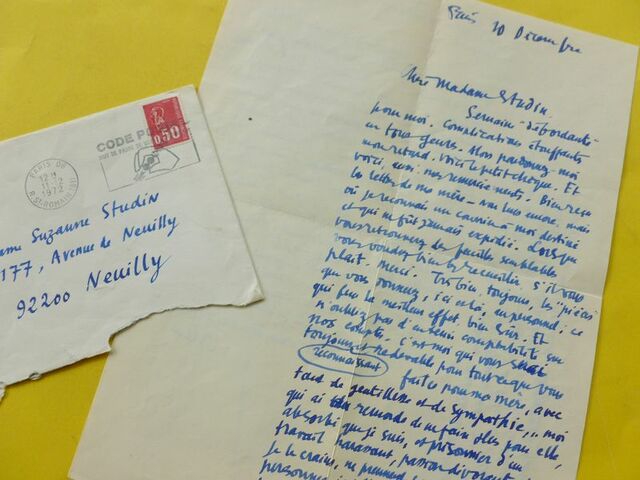 Paris 10 Décembre
Chère Madame Studin.
Semaine "débordante"
pour moi. Complications étouffantes
en tous genres. Alors pardonnez-moi
mon retard. Voici le petit chèque. Et
voici, aussi mes remerciements. Bien reçu
les lettres de ma mère - pas lues encore, mais
où je reconnais un courrier à moi destiné
ce qui ne fût jamais expédié. Lorsque
vous retrouverez des feuilles semblables
vous voudrez bien les recueillir, s'il vous
plaît. Merci. Très bien, toujours, les pièces
que vous donnez, ici et là, au personnel; ce
qui fera le meilleur effet bien sûr. Et
n'oubliez pas d'en tenir comptabilité sur
nos comptes. C'est moi qui vous
toujours redevable pour tout ce que vous
reconnaissant
faites pour ma mère, avec
tant de gentillesse et de sympathie,.. moi
qui ai remords de ne faire plus pour elle,
absorbé que je suis, et prisonnier d'un
travail harassant, passion dévorante
je le crains, ne prennent
CODE PO
0,50
PARIS 06
12 H
11-12
1972
R. ST-ROMAIN (6E)
Suzanne Studin
177, Avenue de Neuilly
92200 Neuilly